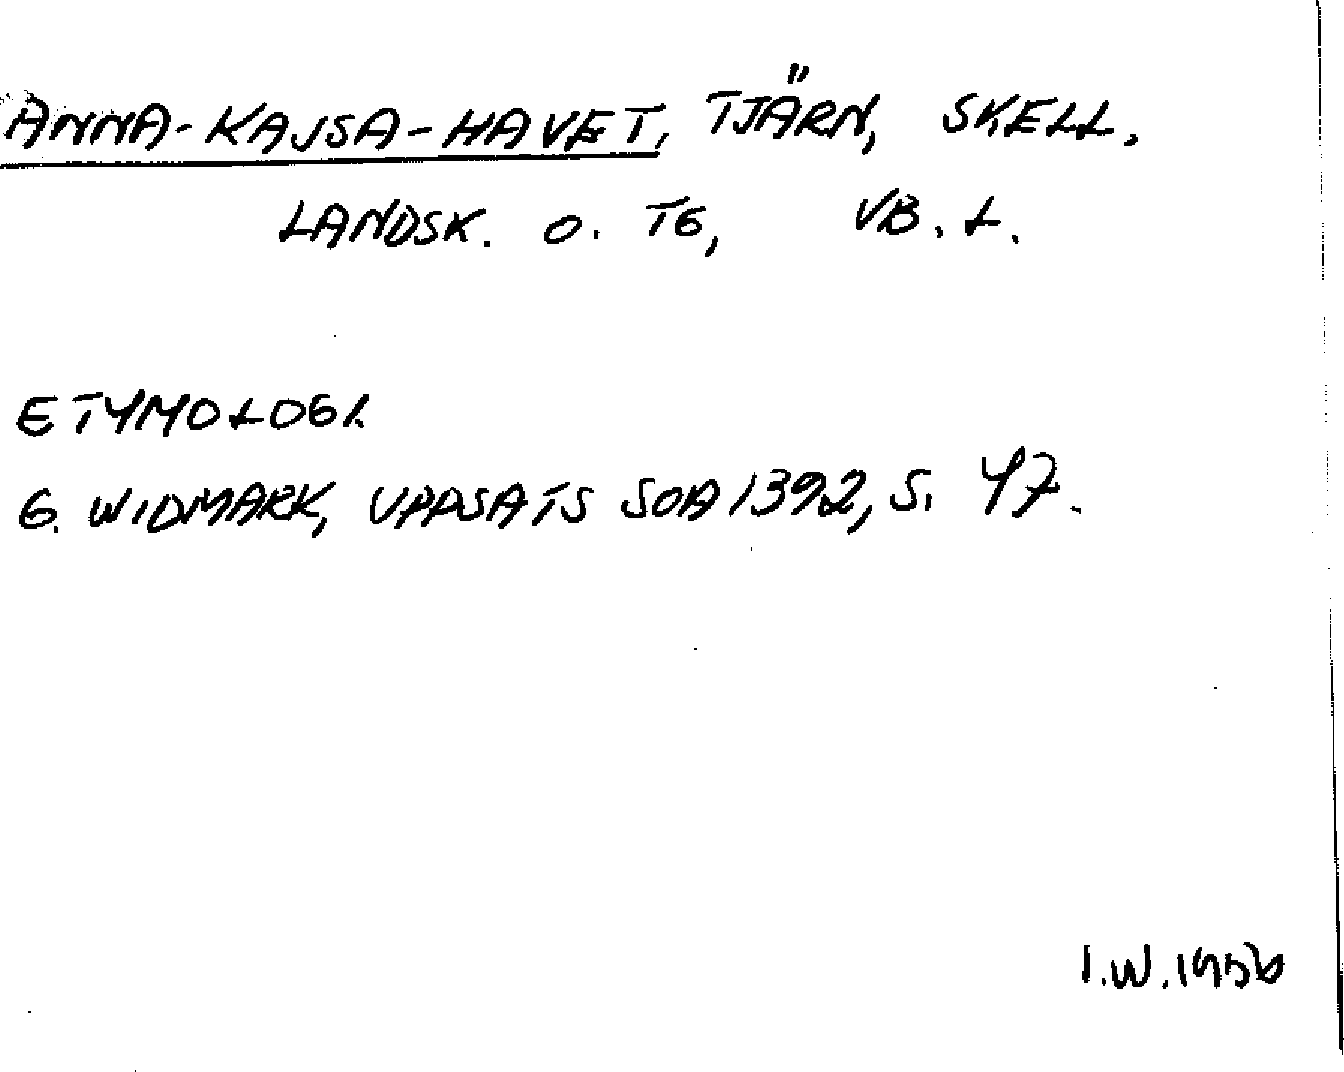 ANNA-KAJSA-HAVET, TJÄRN, SKELL.
LANDSK. O. TG, VB. L.
ETYMOLOGI.
G. WIDMARK, UPPSATS SOA 1392, S. 47.
I.W. 1956